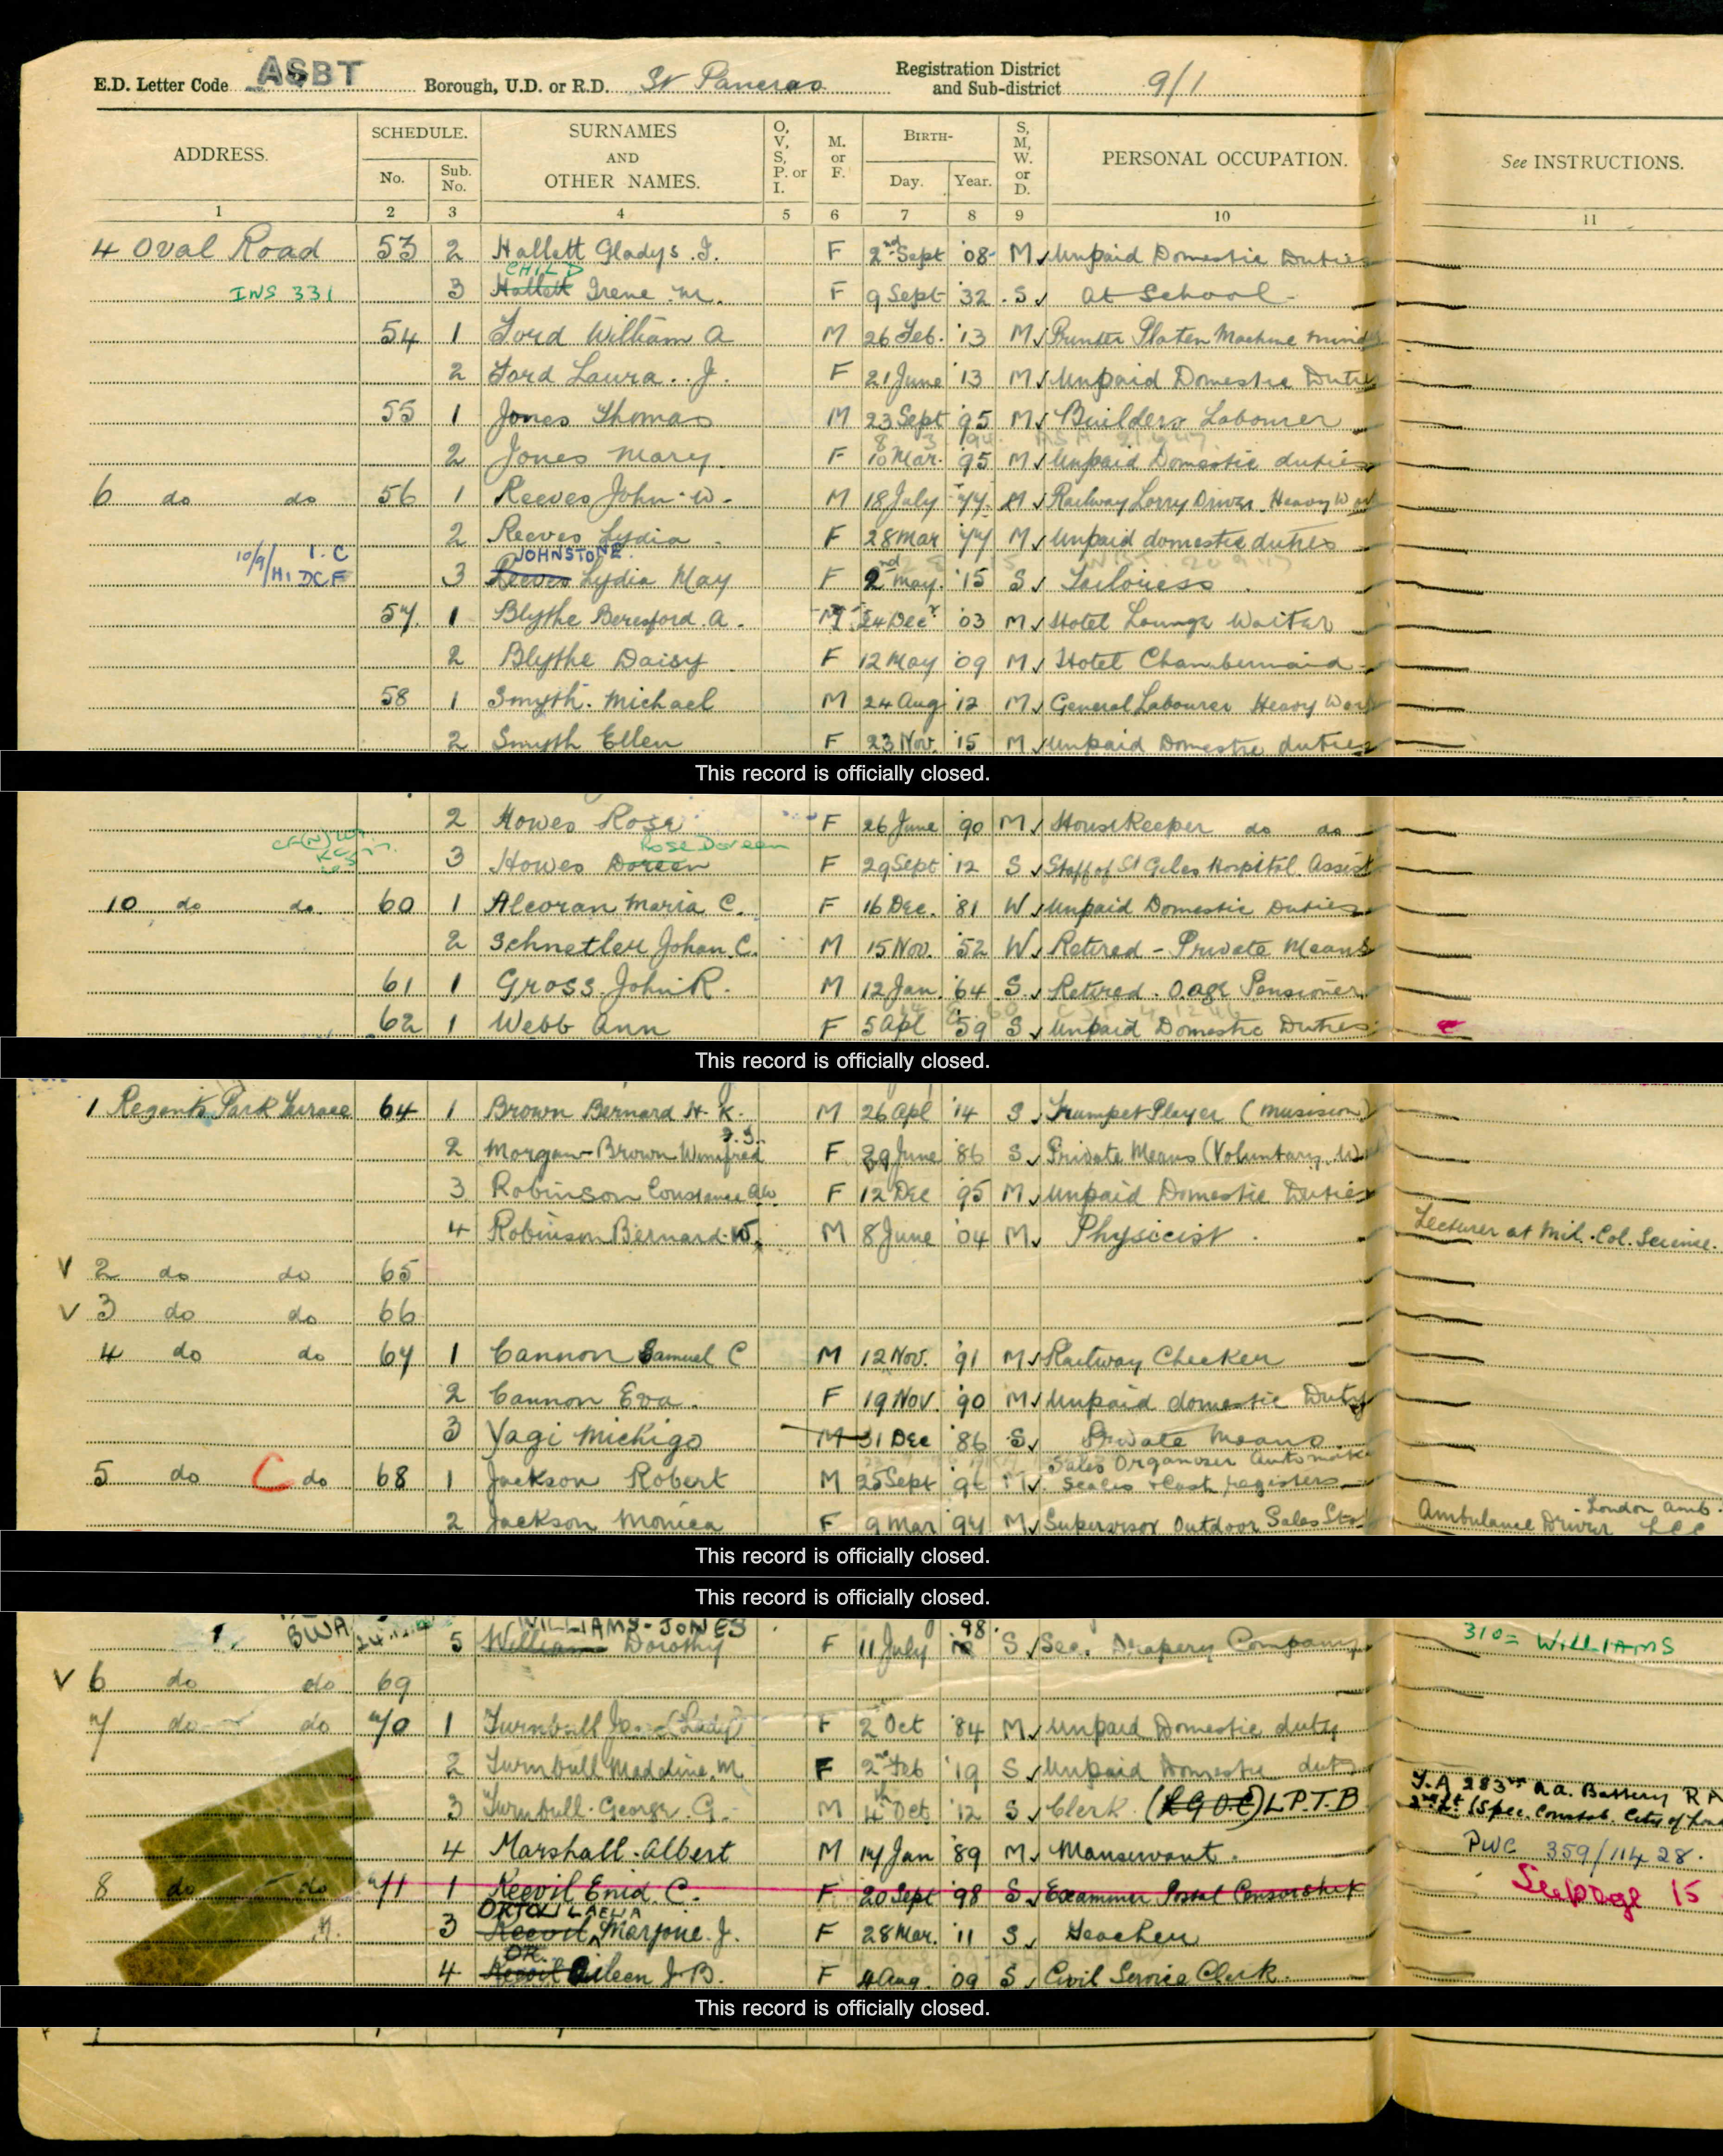 E.D. Letter Code ASBT Borough, U.D. or R.D. St Pancras Registration District and Sub-district 9/1
ADDRESS. SCHEDULE. No. Sub. No. SURNAMES AND OTHER NAMES. O, V, S, P. or I. M. or F. BIRTH- Day. Year. S, M, W. or D. PERSONAL OCCUPATION. See INSTRUCTIONS.
1 2 3 4 5 6 7 8 9 10 11
4 Oval Road 53 2 Hallett Gladys. I. F 2nd Sept '08 M Unpaid Domestic Duties
CHILD
INS 331 3 Hallett Irene. M. F 9 Sept '32 S At School
54 1 Ford William A M 26 Feb. '13 M Printer Platen Machine mind
2 Ford Laura. J. F 21 June '13 M Unpaid Domestic Duties
55 1 Jones Thomas M 23 Sept '95 M Builders Labourer
8 3
2 Jones Mary. F 10 Mar. '95 M Unpaid Domestic duties
6 do do 56 1 Reeves John. W. M 18 July '77 M Railway Lorry Driver Heavy Wor
2 Reeves Lydia F 28 Mar '77 M Unpaid domestic duties
10/9/41 I.C DCF JOHNSTONE
3 Reeves Lydia May F 2nd May. '15 S Tailoress
57 1 Blythe Beresford. A. M 24 Decr '03 M Hotel Lounge Waiter
2 Blythe Daisy F 12 May '09 M Hotel Chambermaid
58 1 Smyth. Michael M 24 Aug '12 M General Labourer Heavy Work
2 Smyth Ellen F 23 Nov. '15 M Unpaid Domestic duties
This record is officially closed.
2 Howes Rose F 26 June '90 M HouseKeeper do do
Rose Doreen
3 Howes Doreen F 29 Sept '12 S Staff of St Giles Hospital Assist
10 do do 60 1 Alcoran Maria C. F 16 Dec. '81 W Unpaid Domestic Duties
2 Schnetler Johan. C. M 15 Nov. '52 W Retired - Private Means
61 1 Gross. John R. M 12 Jan. '64 S Retired. O.age Pensioner
62 1 Webb Ann F 5 Apl '59 S Unpaid Domestic Duties
This record is officially closed.
1 Regents Park Terrace 64 1 Brown Bernard H. K. M 26 Apl '14 S Trumpet Player (musision)
2 Morgan-Brown Winifred F 29 June '86 S Private Means (Voluntary. W
3 Robinson Constance F 12 Dec '95 M Unpaid Domestic Duties
4 Robinson Bernard. W. M 8 June '04 M Physicist. Lecturer at Mil. Col. Science.
V 2 do do 65
V 3 do do 66
4 do do 67 1 Cannon Samuel C M 12 Nov. '91 M Railway Checker
2 Cannon Eva. F 19 Nov. '90 M Unpaid domestic Duty
3 Yagi Michigo M 31 Dec '86 S Private Means
Sales Organiser Automatic
5 do C do 68 1 Jackson Robert M 25 Sept M Scales & Cash registers
2 Jackson Monica F 9 Mar '97 M Supervisor Outdoor Sales Sta Ambulance Driver London Amb.
This record is officially closed.
This record is officially closed.
WILLIAMS-JONES
BWA 5 Williams Dorothy F 11 July 98 S Sec. Drapery Company 310= WILLIAMS
V 6 do do 69
7 do do 70 1 Turnbull (Lady) F 2 Oct '84 M Unpaid Domestic duty
2 Turnbull Madeline. M F 2nd Feb '19 S Unpaid Domestic duty
3 Turnbull. George. G. M 4th Oct '12 S Clerk. (L G O C) L.P.T.B T.A 283rd A.A. Battery R A
2nd Lt (Spec. Constab. City of Lon
4 Marshall. Albert M 17 Jan '89 M Manservant. PWC 359/114 28.
8 do do 71 1 Keevil Enid. C. F 20 Sept '98 S Examiner Postal Censorship See page 15
3 Keevil Marjorie. J. F 28 Mar. '11 S Teacher
OR
4 Keevil Eileen J. B. F 4 Aug. '09 S Civil Service Clerk.
This record is officially closed.